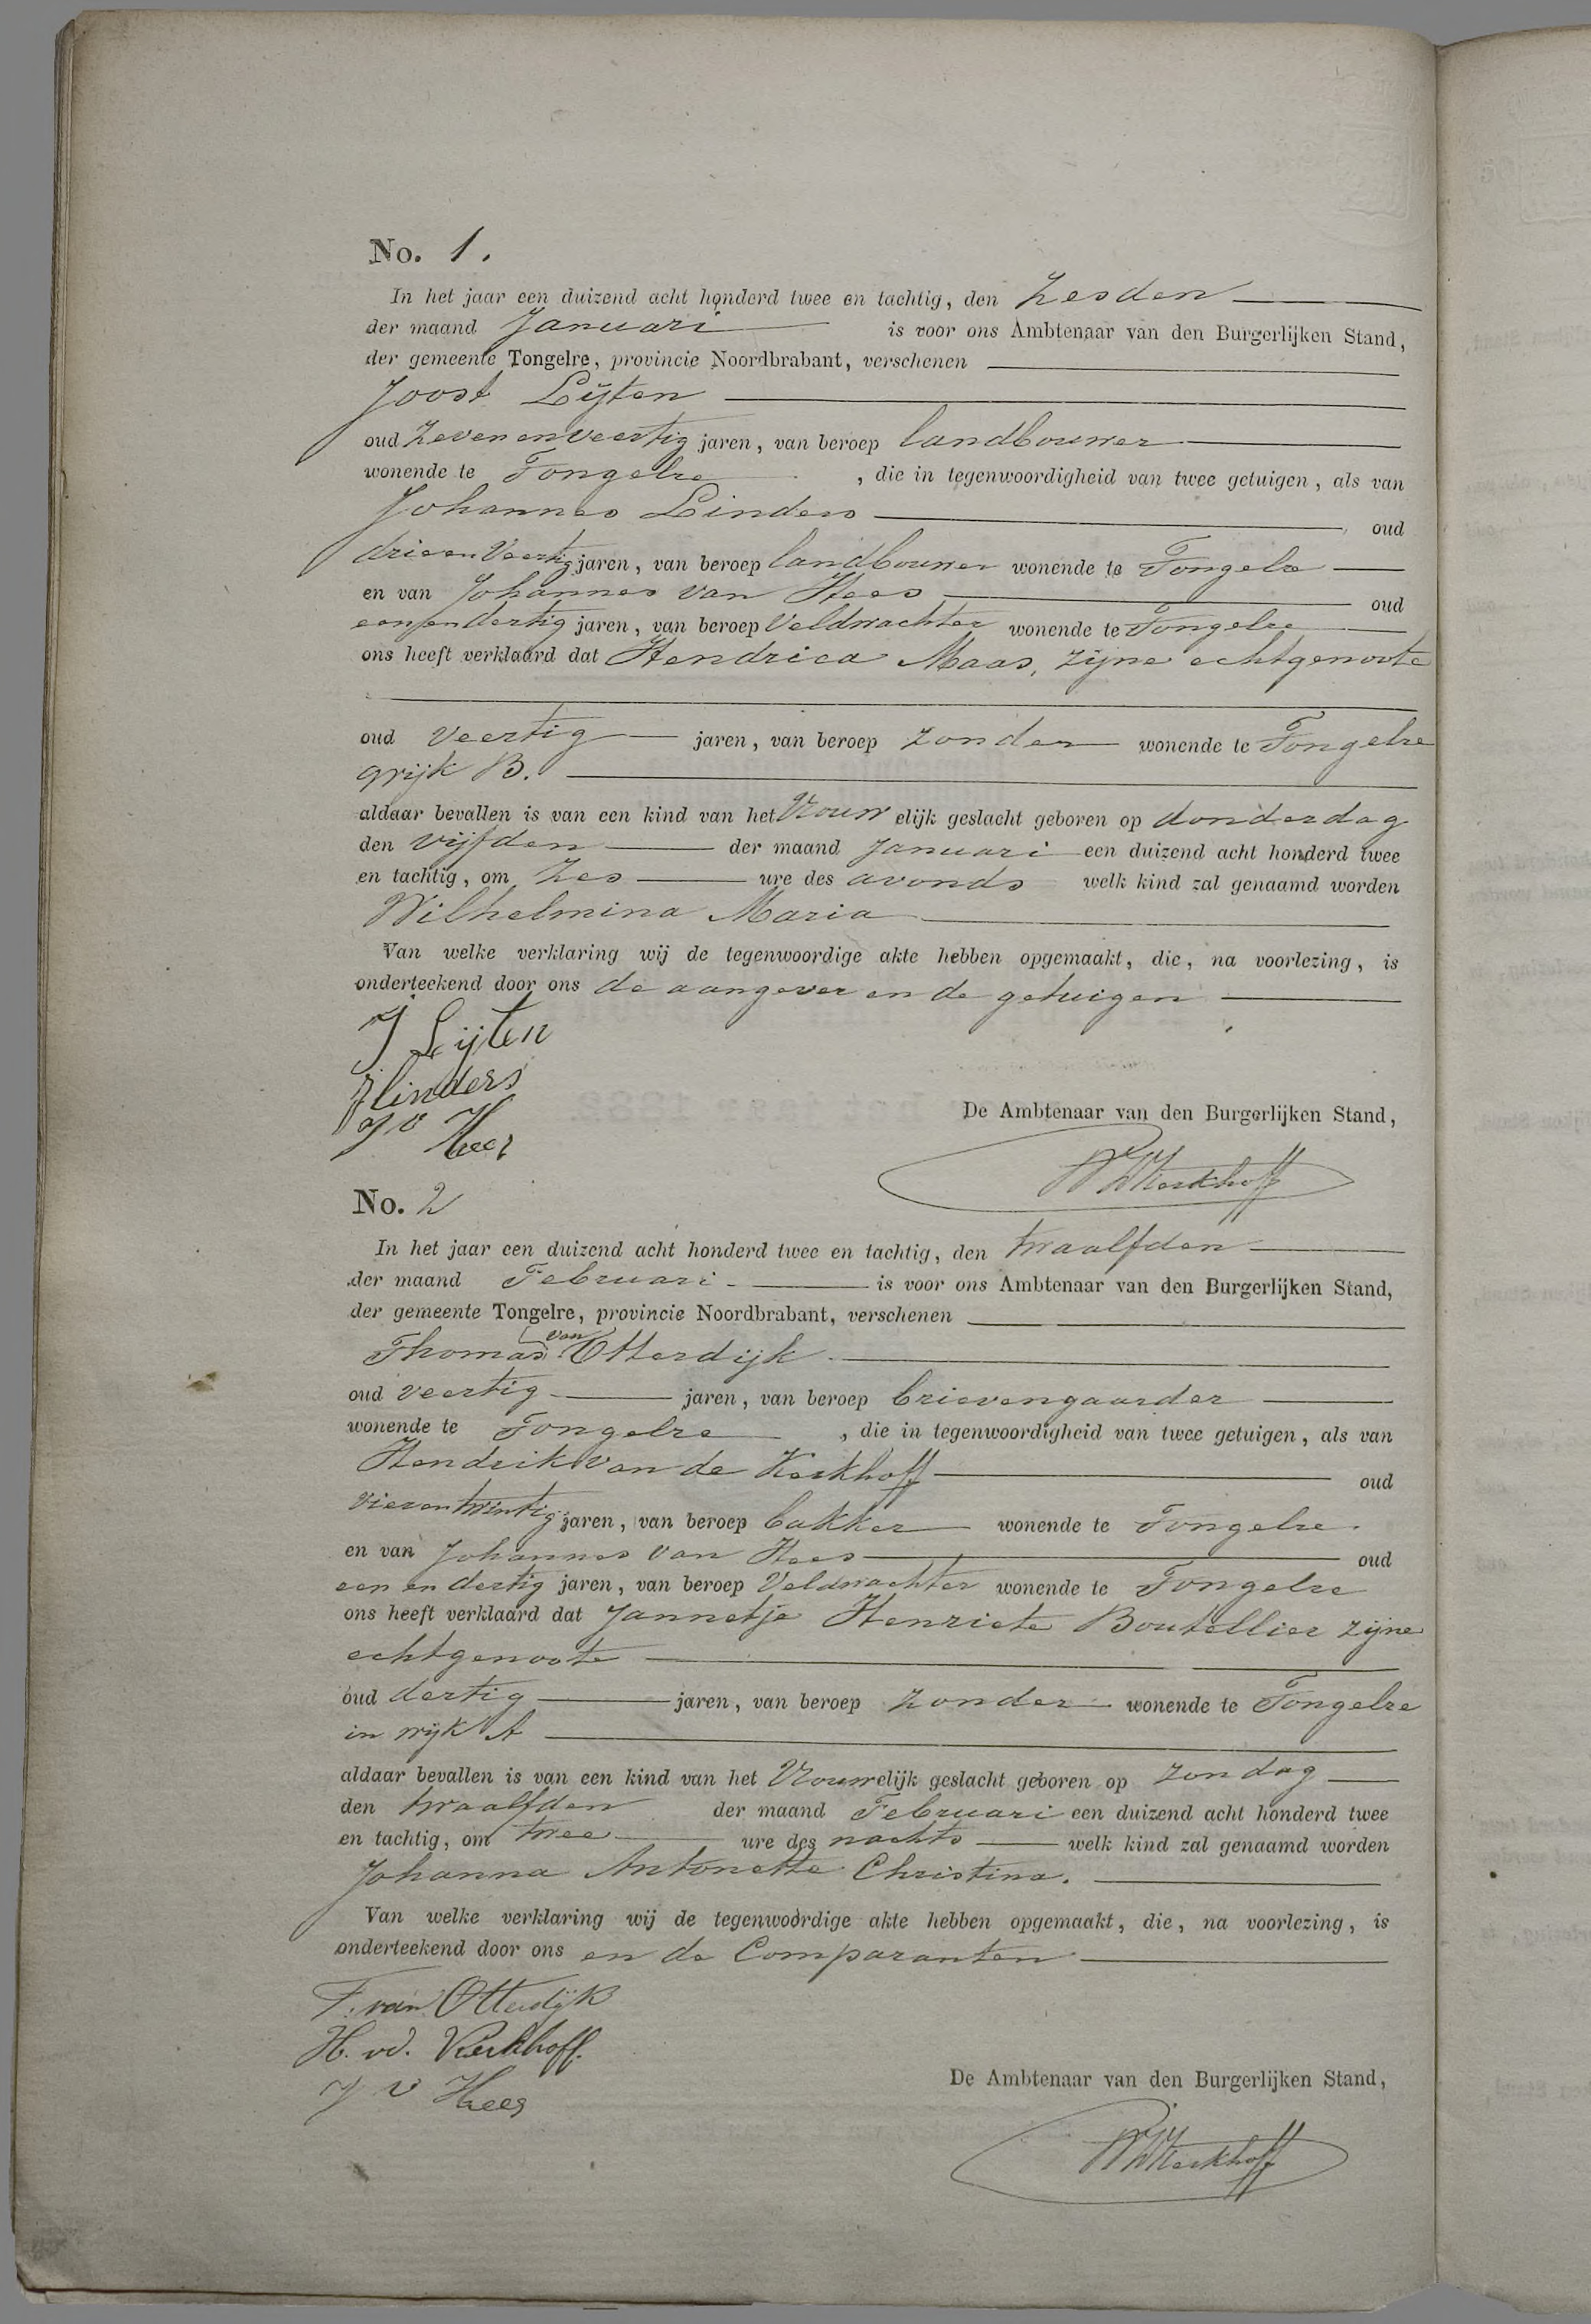 No. 1.
In het jaar een duizend acht honderd twee en tachtig, den Zesden
der maand Januari is voor ons Ambtenaar van den Burgerlijken Stand,
der gemeente Tongelre, provincie Noordbrabant, verschenen
Joost Lijten
oud Zevenenveertig jaren, van beroep landbouwer
wonende te Tongelre, die in tegenwoordigheid van twee getuigen, als van
Johannes Linders oud
drieenveertig jaren, van beroep landbouwer wonende te Tongelre
en van Johannes van Hees oud
eenendertig jaren, van beroep Veldwachter wonende te Tongelre
ons heeft verklaard dat Hendrica Maas, zijne echtgenoote
oud veertig jaren, van beroep zonder wonende te Tongelre
wijk B.
aldaar bevallen is van een kind van het Vrouwelijk geslacht geboren op donderdag
den vijfden der maand Januari een duizend acht honderd twee
en tachtig, om Zes ure des avonds welk kind zal genaamd worden
Wilhelmina Maria
Van welke verklaring wij de tegenwoordige akte hebben opgemaakt, die, na voorlezing, is
onderteekend door ons de aangever en de getuigen
J Lijten
J linders
J v Hees
De Ambtenaar van den Burgerlijken Stand,
Kerkhoff
No. 2
In het jaar een duizend acht honderd twee en tachtig, den twaalfden
der maand Februari is voor ons Ambtenaar van den Burgerlijken Stand,
der gemeente Tongelre, provincie Noordbrabant, verschenen
Thomas van Otterdijk
oud veertig jaren, van beroep brievengaarder
wonende te Tongelre, die in tegenwoordigheid van twee getuigen, als van
Hendrik van de Kerkhoff oud
vierentwintig jaren, van beroep bakker wonende te Tongelre.
en van Johannes van Hees oud
een en dertig jaren, van beroep Veldwachter wonende te Tongelre
ons heeft verklaard dat Jannetje Henriete Boutellier zijne
echtgenoote
oud dertig jaren, van beroep zonder wonende te Tongelre
in wijk A
aldaar bevallen is van een kind van het Vrouwelijk geslacht geboren op zondag
den twaalfden der maand Februari een duizend acht honderd twee
en tachtig, om twee ure des nachts welk kind zal genaamd worden
Johanna Antonetta Christina.
Van welke verklaring wij de tegenwoordige akte hebben opgemaakt, die, na voorlezing, is
onderteekend door ons en de Comparanten
T. van Otterdijk
H. vd. Kerkhoff.
J v Hees
De Ambtenaar van den Burgerlijken Stand,
Kerkhoff